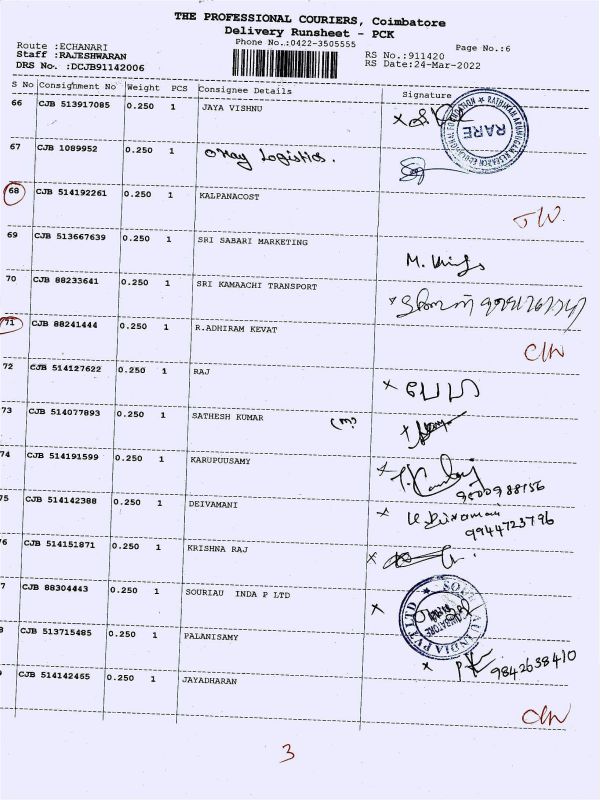 THE PROFESSIONAL COURIERS, Coimbatore
Delivery Runsheet - PCK
Phone No.:0422-3505555
Page No.:6
Route :ECHANARI
Staff :RAJESHWARAN
DRS No. :DCJB91142006
RS No.:911420
RS Date:24-Mar-2022
S No Consignment No Weight PCS Consignee Details Signature
66 CJB 513917085 0.250 1 JAYA VISHNU
RARE
67 CJB 1089952 0.250 1 Logistics.
68 CJB 514192261 0.250 1 KALPANACOST
69 CJB 513667639 0.250 1 SRI SABARI MARKETING
M.
70 CJB 88233641 0.250 1 SRI KAMAACHI TRANSPORT
71 CJB 88241444 0.250 1 R.ADHIRAM KEVAT
72 CJB 514127622 0.250 1 RAJ
73 CJB 514077893 0.250 1 SATHESH KUMAR (m)
74 CJB 514191599 0.250 1 KARUPUUSAMY
75 CJB 514142388 0.250 1 DEIVAMANI
9944723796
76 CJB 514151871 0.250 1 KRISHNA RAJ
7 CJB 88304443 0.250 1 SOURIAU INDA P LTD
8 CJB 513715485 0.250 1 PALANISAMY
9842638410
9 CJB 514142465 0.250 1 JAYADHARAN
3